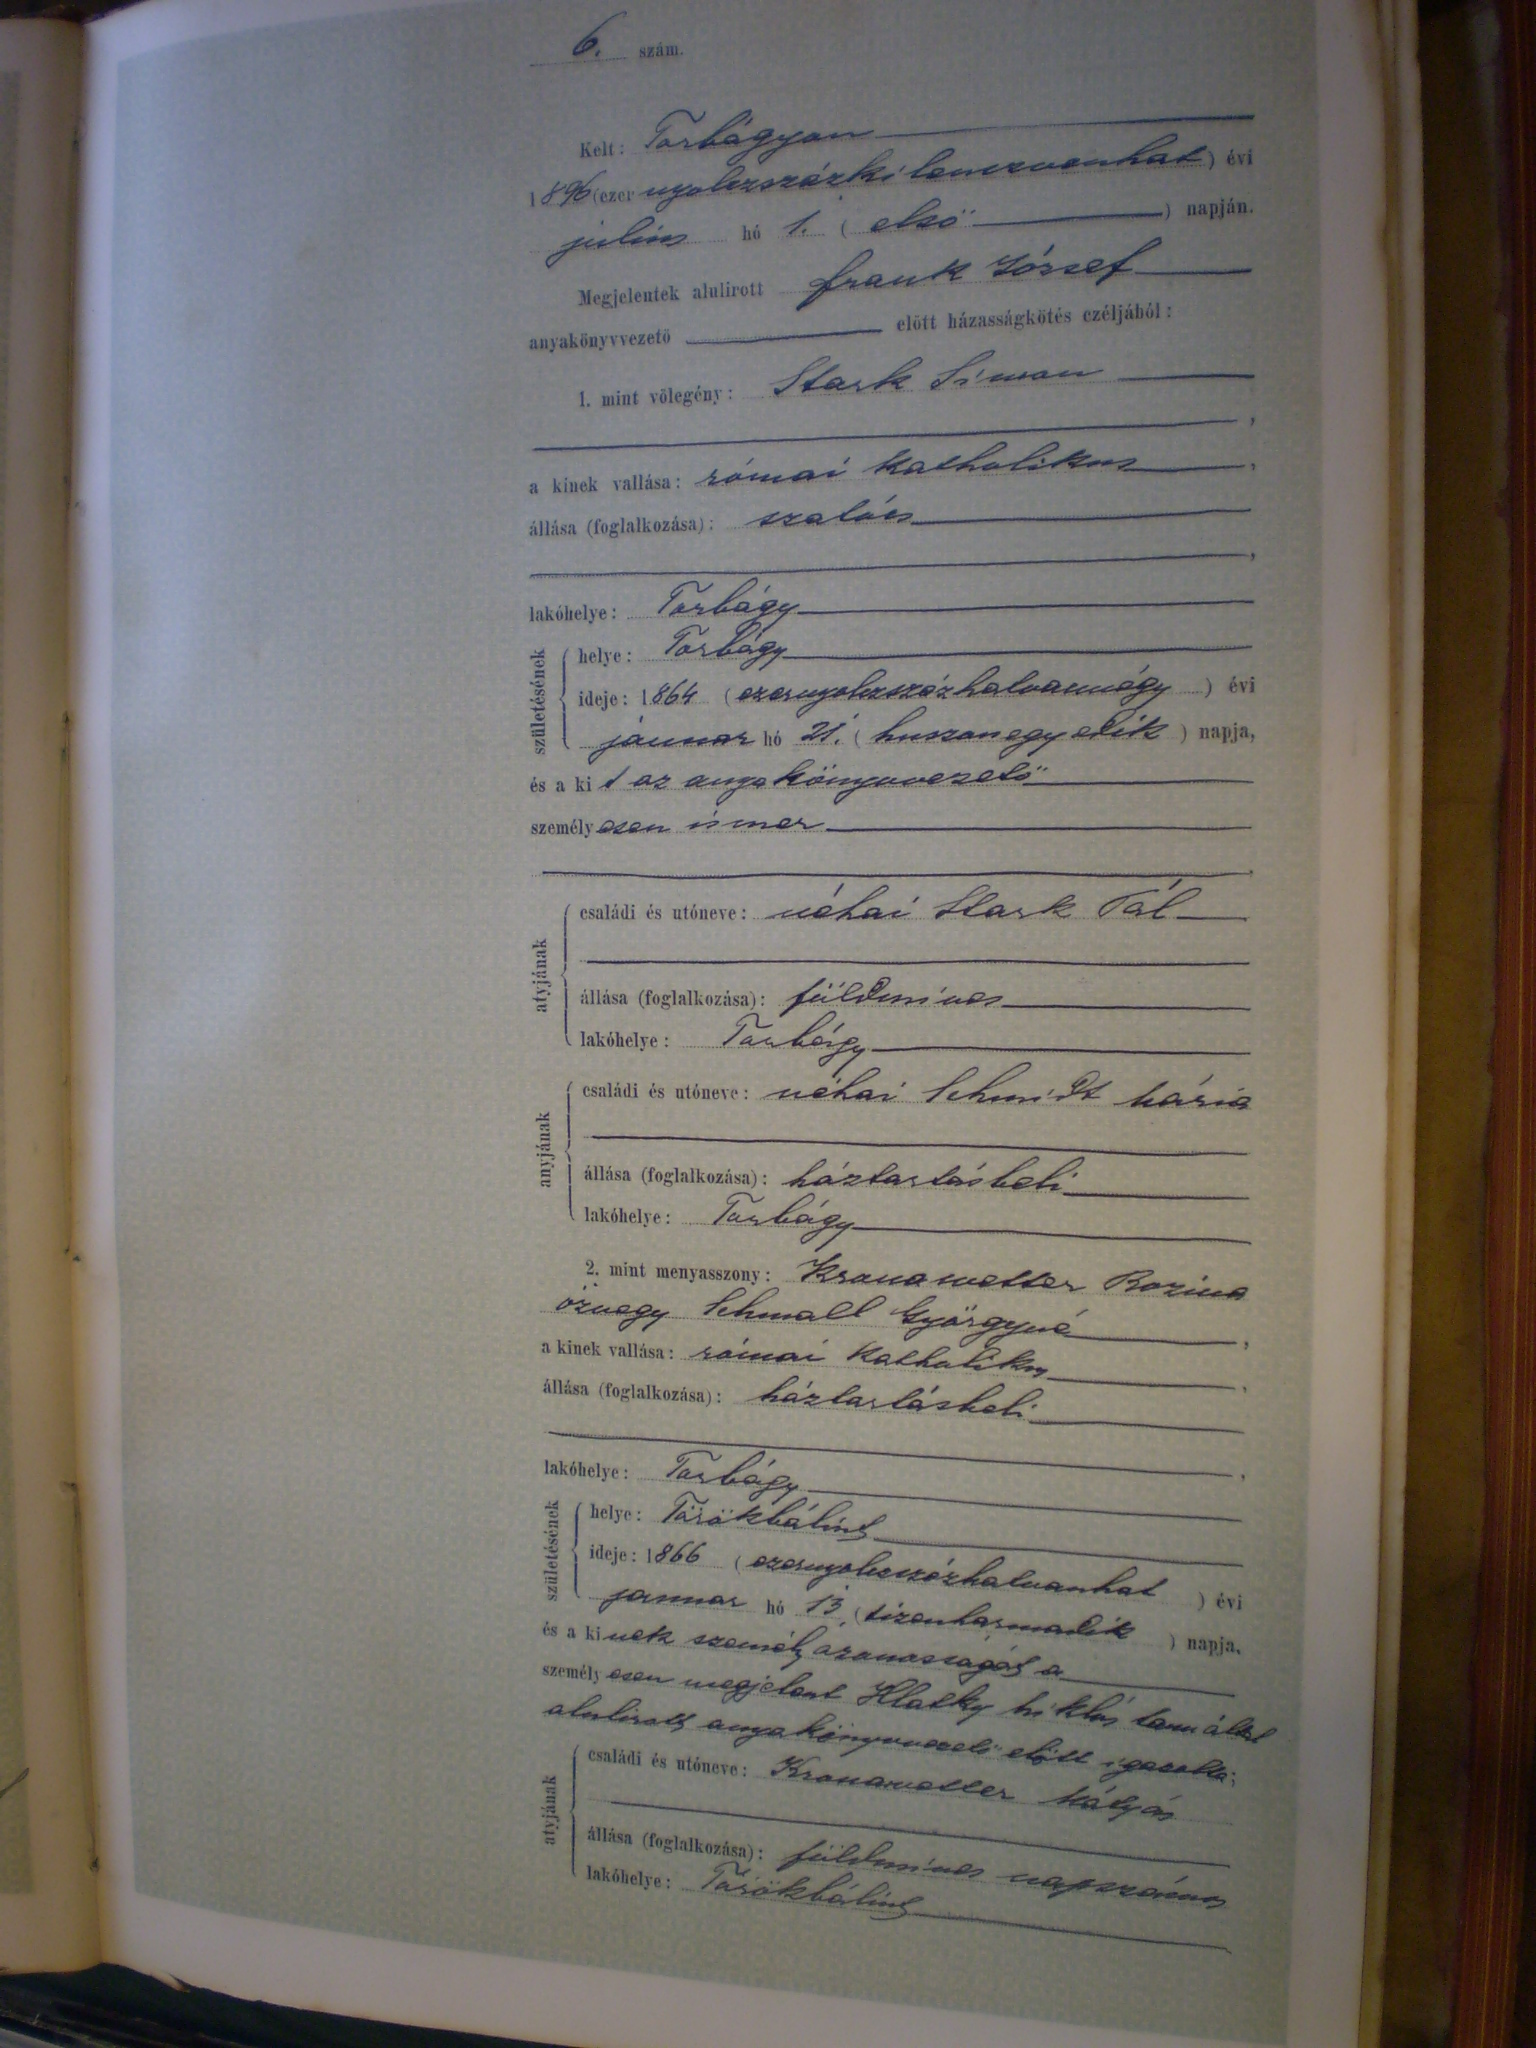 6. szám.
Kelt: Torbágyon
1896 (ezer nyolczszázkilenczvenhat) évi
július hó 1. (első) napján.
Megjelentek alulirott Frank József
anyakönyvvezető előtt házasságkötés czéljából:
1. mint vőlegény: Stark Simon
,
a kinek vallása: római katholikus,
állása (foglalkozása): szatócs
,
lakóhelye: Torbágy
születésének
helye: Torbágy
ideje: 1864 (ezernyolczszázhatvannégy) évi
január hó 21. (huszonegyedik) napja,
és a kit az anyakönyvvezető
személyesen ismer
atyjának
családi és utóneve: néhai Stark Pál
állása (foglalkozása): földmives
lakóhelye: Torbágy
anyjának
családi és utóneve: néhai Schmidt Mária
állása (foglalkozása): háztartásbeli
lakóhelye: Torbágy
2. mint menyasszony: Kronawetter Rozina
özvegy Schmall Györgyné,
a kinek vallása: római katholikus,
állása (foglalkozása): háztartásbeli
,
lakóhelye: Torbágy
születésének
helye: Törökbálint
ideje: 1866 (ezernyolczszázhatvanhat) évi
januar hó 13. (tizenharmadik) napja,
és a kinek személyazonosságát a
személyesen megjelent Hlatky Miklós tanu által
alulirott anyakönyvvezető előtt igazolta;
atyjának
családi és utóneve: Kronawetter Mátyás
állása (foglalkozása): földmives napszámos
lakóhelye: Törökbálint